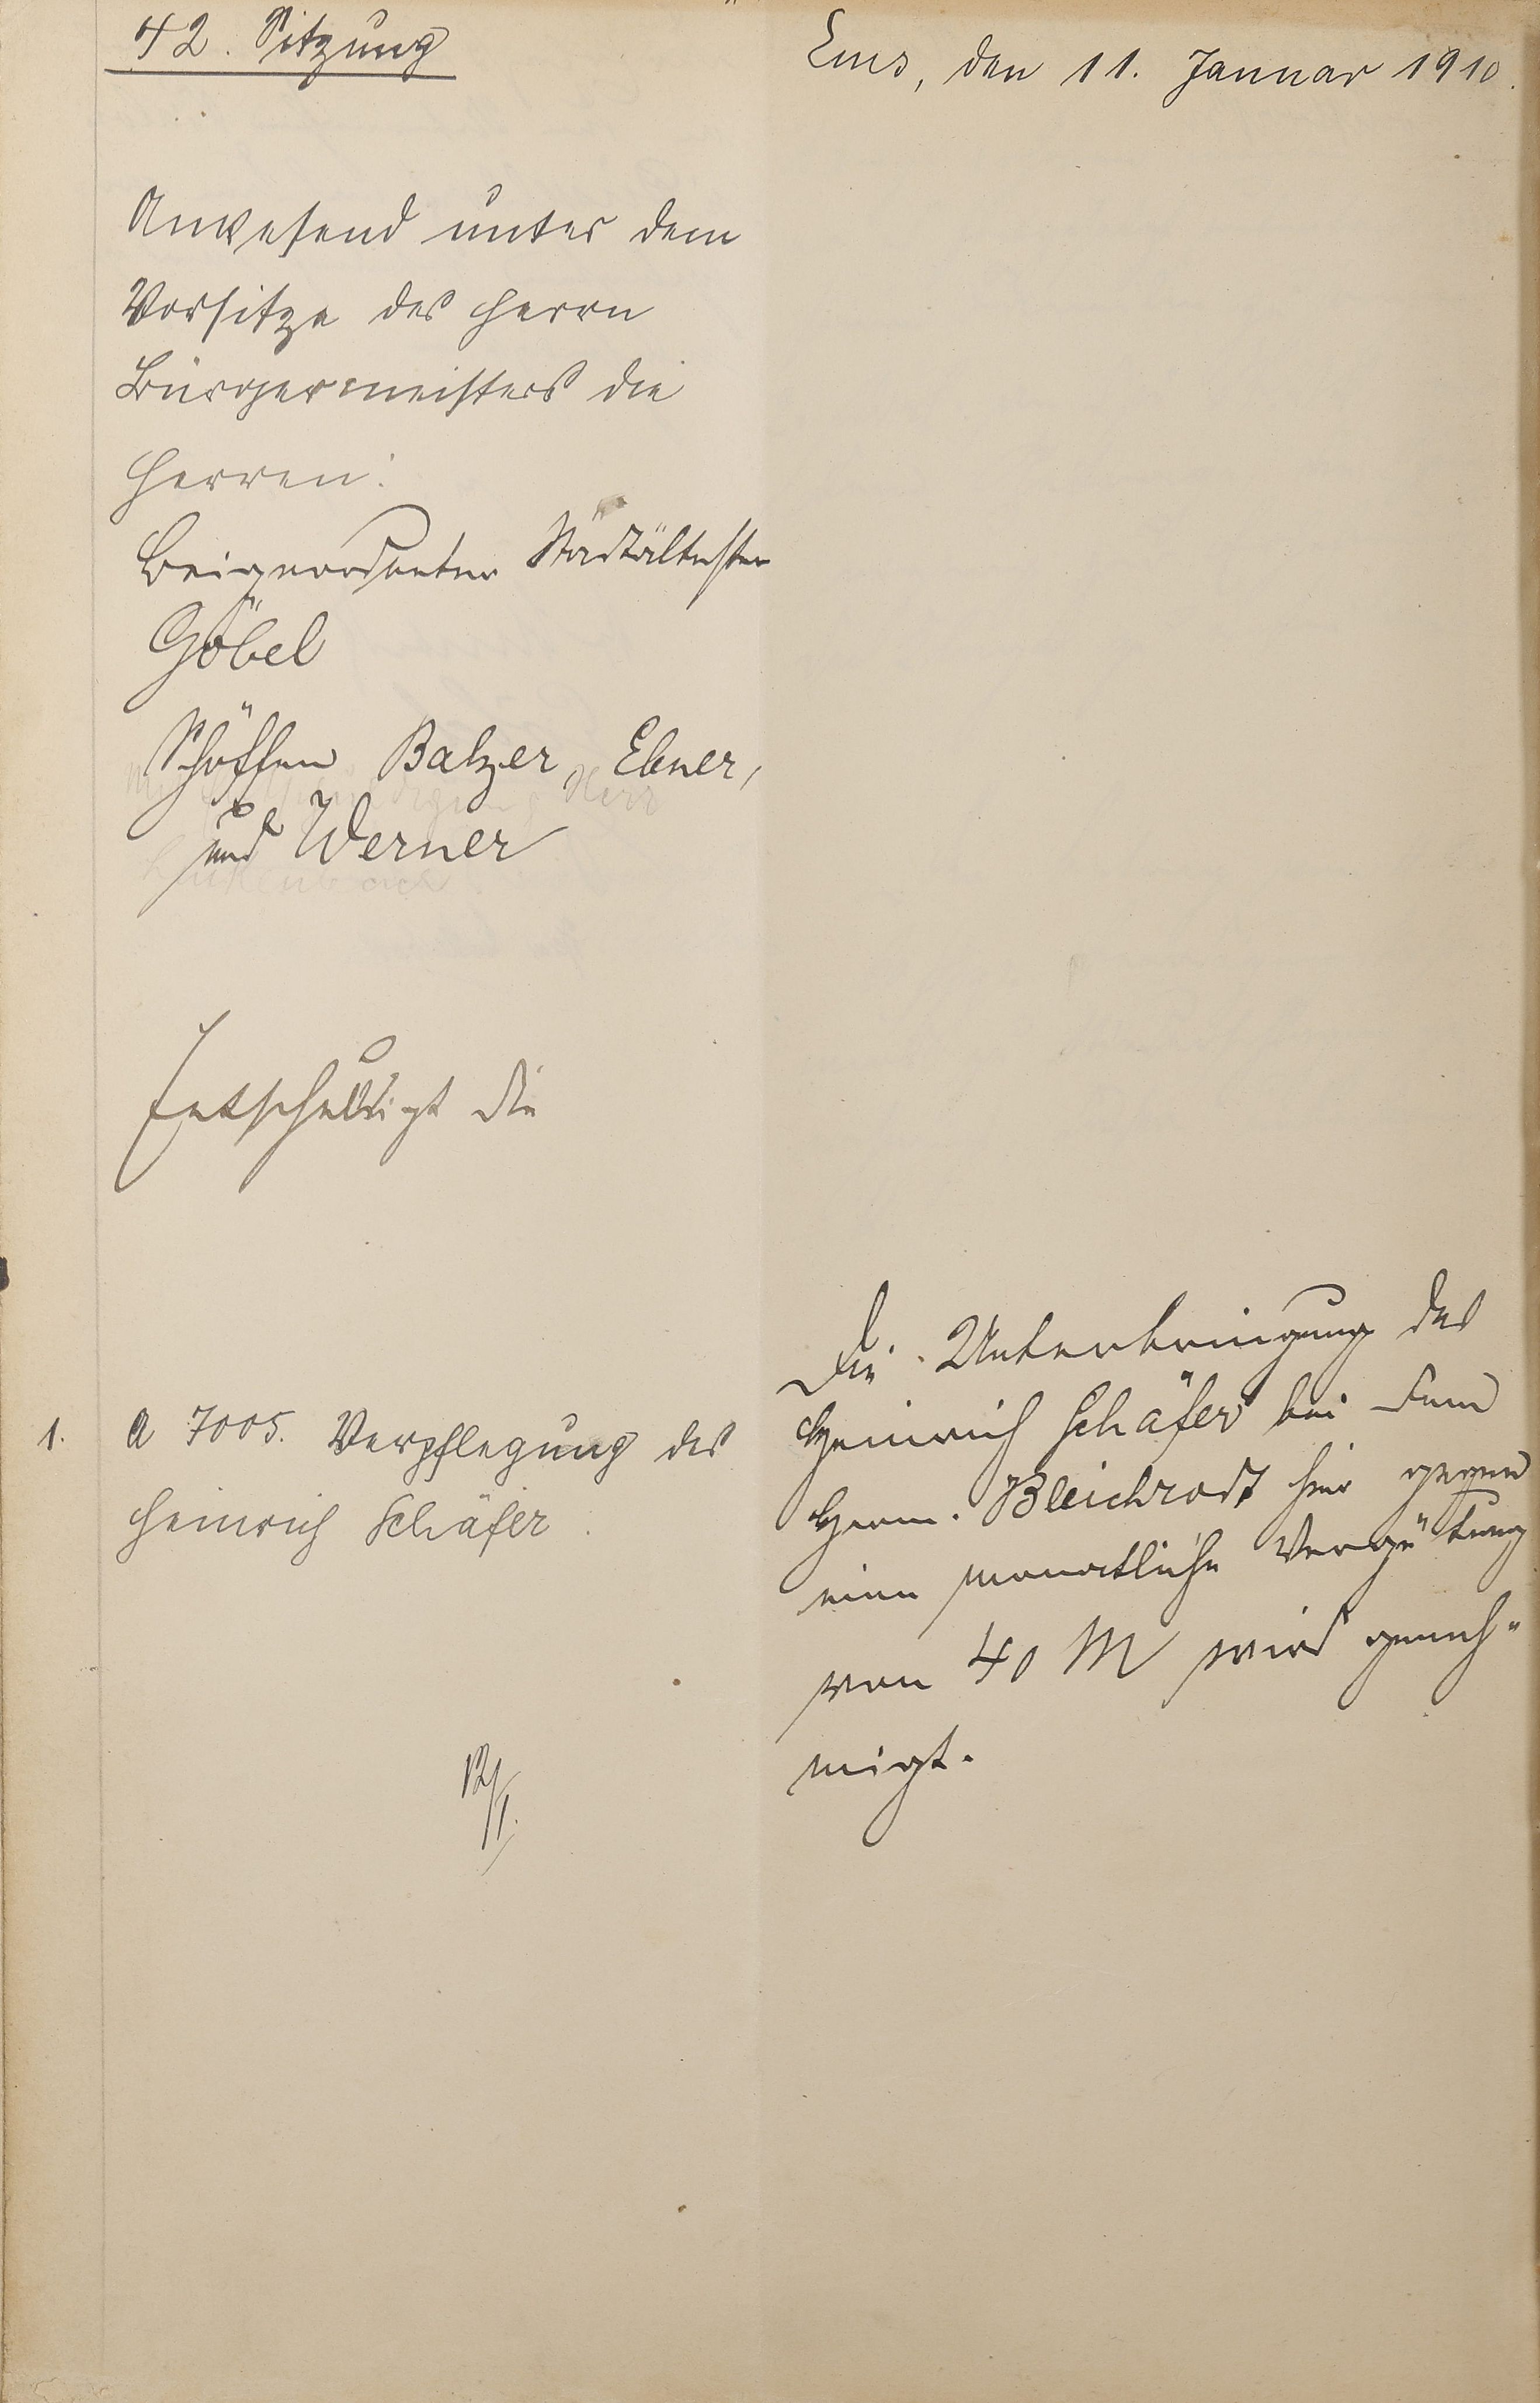 42. Sitzung
Ems, den 11. Januar 1910.
Anwesend unter dem
Vorsitze des Herrn
Bürgermeisters die
Herren:
Beigeordneter Stadtältester
Göbel
Schöffen Balzer, Ebner,
und Werner
Entschuldigt die
1. A 7005. Verpflegung des
Heinrich Schäfer.
Die Unterbringung des
Heinrich Schäfer bei dem
Herm. Bleichrodt hier gegen
eine monatliche Vergütung
von 40 M wird geneh-
migt.
12/I.